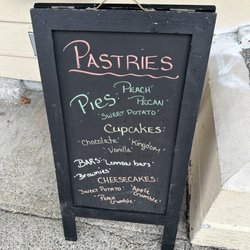 PASTRIES
Pies: 'PEACH'
'PECAN'
'SWEET POTATO'
CUPCAKES:
'Chocolate' 'Kingdom'
'Vanilla'
BARS: 'Lemon bars'
'Brownies'
CHEESECAKES:
'SWEET POTATO' 'Apple Crumble'
'Peach Crumble'